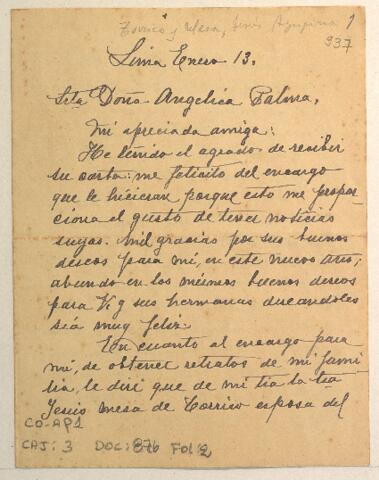 Torrico y Mesa, Jesús Agripina 1
937
Lima Enero 13.
Srta Doña Angelica Palma,
Mi apreciada amiga:
He tenido el agrado de recibir
su carta: me felicito del encargo
que le hicieran porque esto me propor-
ciona el gusto de tener noticias
suyas. Mil gracias por sus buenos
deseos para mi, en este nuevo año;
abundo en los mismos buenos deseos
para V. y sus hermanas deseandoles
sea muy feliz.
En cuanto al encargo para
mi, de obtener retratos de mi fami
lia, le diré que de mi tia la tia
Jesus mesa de Torrico esposa del
CO-AP1
CAJ: 3 DOC: 876 FOL: 2